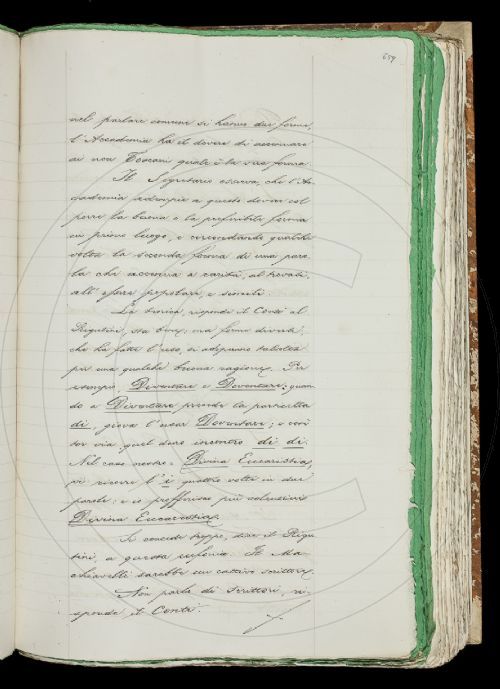 659
nel parlare comune si hanno due forme,
l'Accademia ha il dovere di accennare
ai non Toscani quale è la vera forma.
Il Segretario osserva, che l'Ac-
cademia adempie a questo dovere col
porre la buona e la preferibile forma
in primo luogo, e circondando qualche
volta la seconda forma di una paro-
la che accenna a rarità, al trovato,
all'esser popolare, e simili.
La turica, risponde il Conti al
Rigutini, sta bene; ma forme diverse,
che ha fatte l'uso, si adoprano talvolta
per una qualche buona ragione. Per
esempio, Diventare e Doventare; quan-
do a Diventare precede la particella
di, giova l'usar Doventare; e così
tor via quel duro incontro di di.
Nel caso nostro: Divina Eucaristia,
vi ricorre l'i quattro volte in due
parole: e io preferisco più volentieri
Divina Eucarestia.
Si concede troppo, dice il Rigu-
tini, a questa eufonia. Il Ma-
chiavelli sarebbe un cattivo scrittore.
Non parlo di Scrittori, ri-
sponde il Conti.